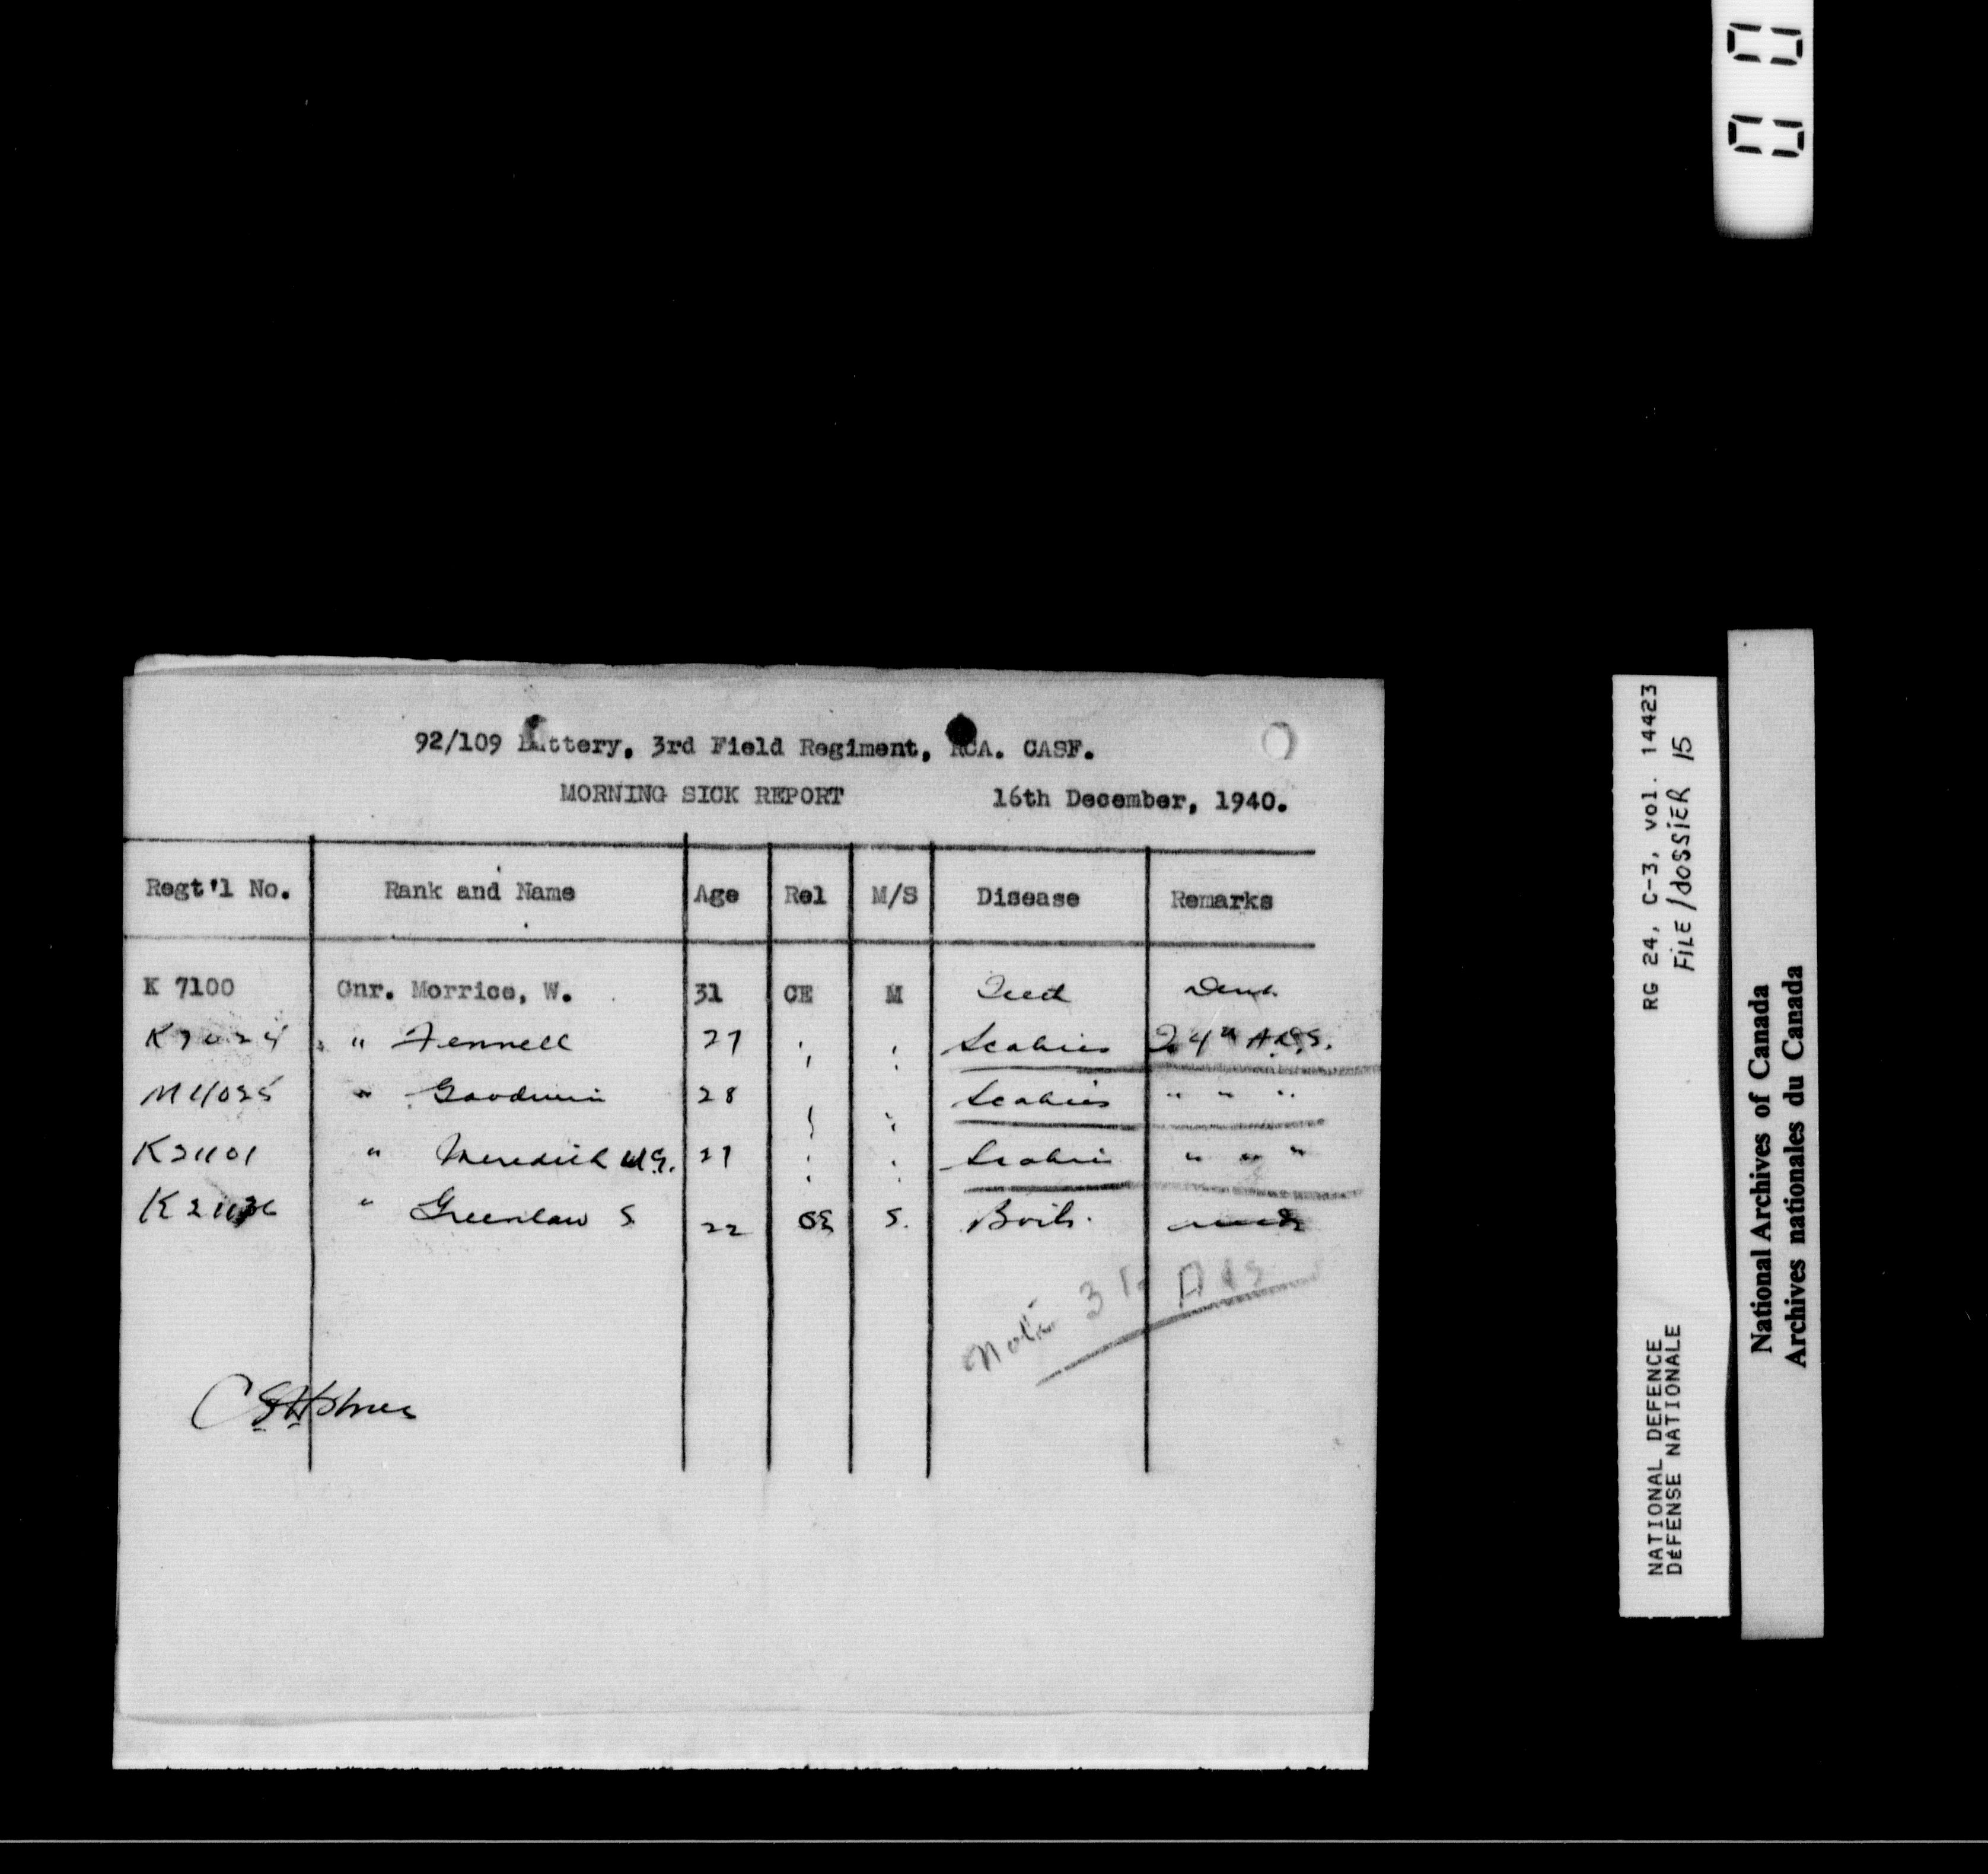 92/109 Battery, 3rd Field Regiment, RCA. CASF.
MORNING SICK REPORT 16th December, 1940.
Regt'l No. Rank and Name Age Rel M/S Disease Remarks
K 7100 Gnr. Morrice, W. 31 CE M Teeth Dent.
" Fennell 27 " " Scabies 24th
M4025 " Goodwin 28 " " Scabies " " "
K21101 " Meredith W.G. 27 " " Scabies " " "
" Greenlaw S 22 S. Boils.
Note 3
RG 24, C-3, vol. 14423
FILE/dOSSiER 15
NATIONAL DEFENCE
DÉFENSE NATIONALE
National Archives of Canada
Archives nationales du Canada